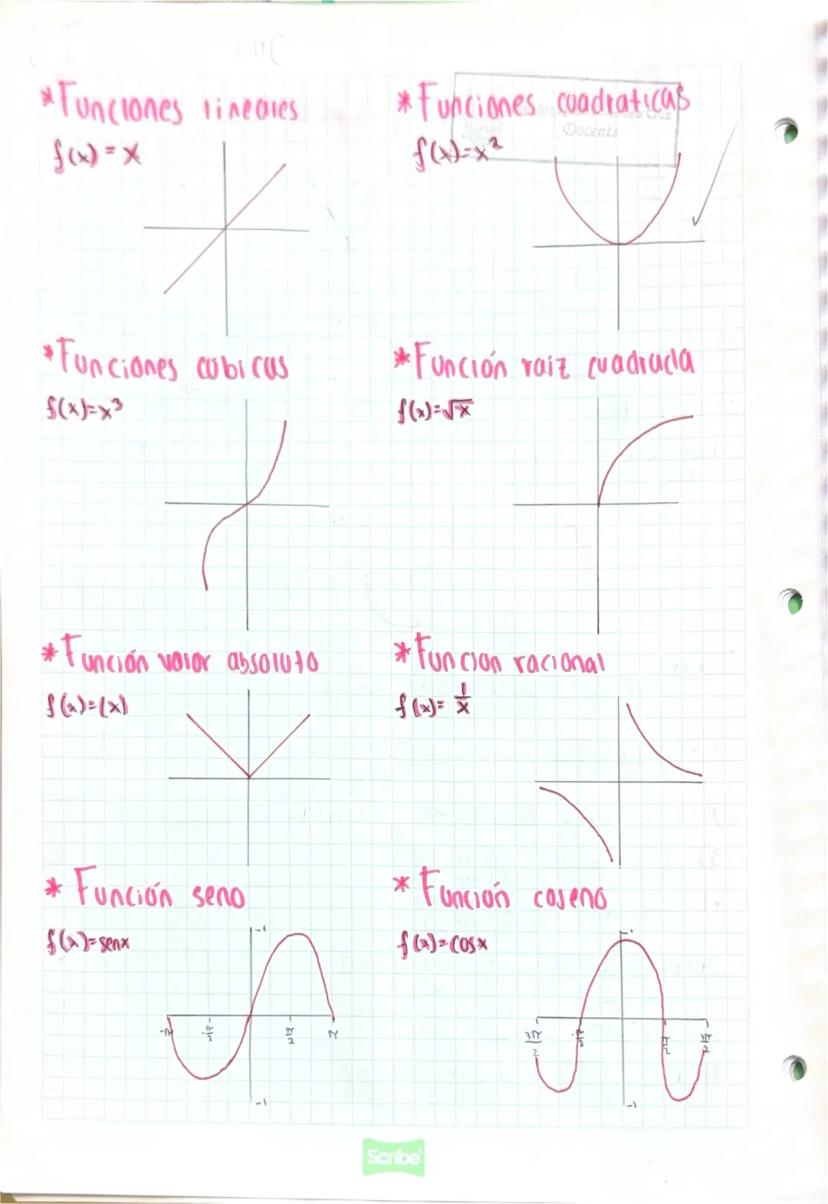 *Funciones lineales
f(x) = x
*Funciones cuadraticas
Docente
f(x)=x²
*Funciones cubicas
f(x)=x³
*Función raiz cuadrada
f(x)=√x
*Función valor absoluto
f(x)=(x)
*Funcion racional
f(x)= 1/x
*Función seno
f(x)=senx
-1
-π
-π/2
π/2
π
-1
*Función coseno
f(x)=cosx
3π/2
-π/2
π/2
3π/2
-1
Scribe